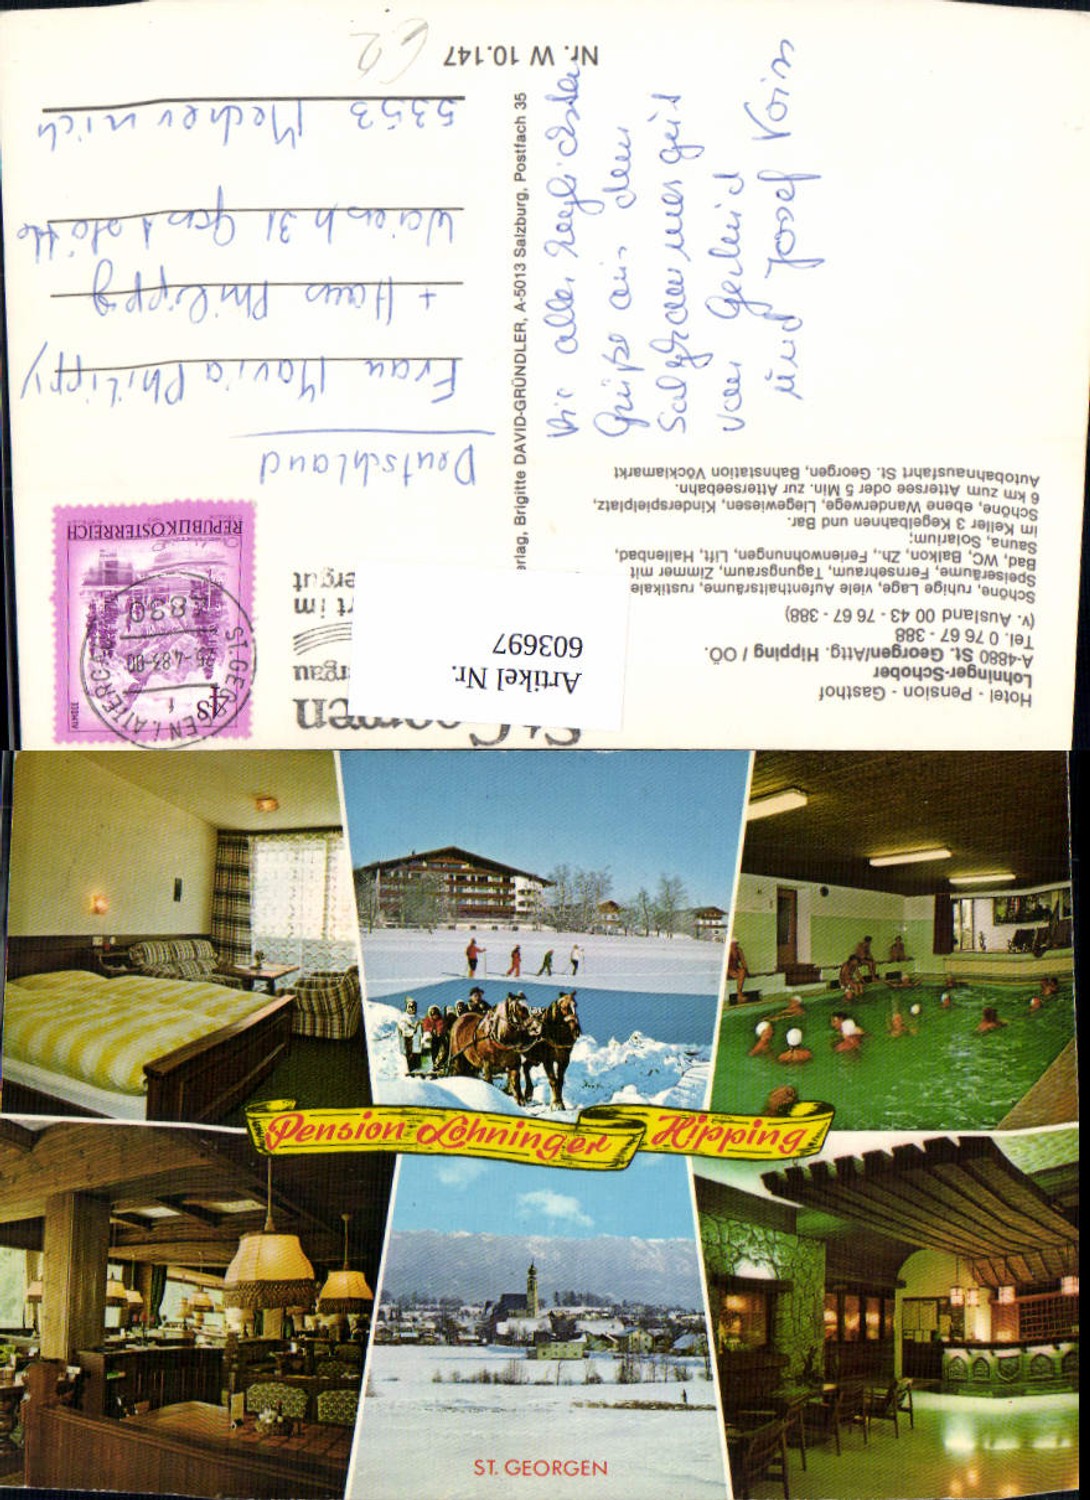 Hotel - Pension - Gasthof
Lohninger-Schober
A-4880 St. Georgen/Attg. Hipping / OÖ.
Tel. 0 76 67 - 388
(v. Ausland 00 43 - 76 67 - 388)
Schöne, ruhige Lage, viele Aufenthaltsräume, rustikale
Speiseräume, Fernsehraum, Tagungsraum, Zimmer mit
Bad, WC, Balkon, Zh., Ferienwohnungen, Lift, Hallenbad,
Sauna, Solarium;
im Keller 3 Kegelbahnen und Bar.
Schöne, ebene Wanderwege, Liegewiesen, Kinderspielplatz,
6 km zum Attersee oder 5 Min. zur Atterseebahn.
Autobahnausfahrt St. Georgen, Bahnstation Vöcklamarkt
Die allerherzlichsten
Grüße aus dem
Salzkammergut
von Gerlind
und Josef Voim
erlag, Brigitte DAVID-GRÜNDLER, A-5013 Salzburg, Postfach 35
St. Georgen
rgau
rt im
ergut
Artikel Nr.
603697
4S
REPUBLIK ÖSTERREICH
ST. GEORGEN I. ATTERGAU
25-4.83-00
4880
Deutschland
Frau Maria Philippy
+ Hans Philippy
Weiersh 31
5353 Mechernich
Nr. W 10.147
62
Pension Lohninger Hipping
ST. GEORGEN